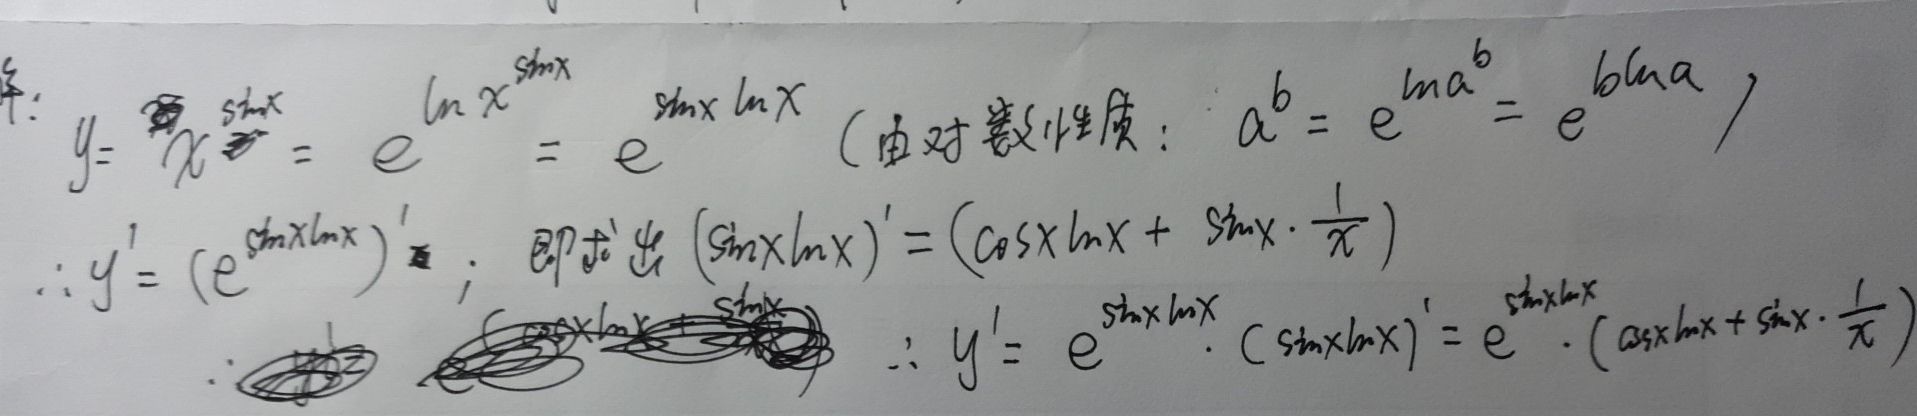 解: y = x^{sinx} = e^{ln x^{sinx}} = e^{sinx lnx} (由对数性质: a^b = e^{ln a^b} = e^{b ln a})
∴ y' = (e^{sinx lnx})' ; 即求出 (sinx lnx)' = (cosx lnx + sinx · 1/x)
∴ y' = e^{sinx lnx} · (sinx lnx)' = e^{sinx lnx} · (cosx lnx + sinx · 1/x)